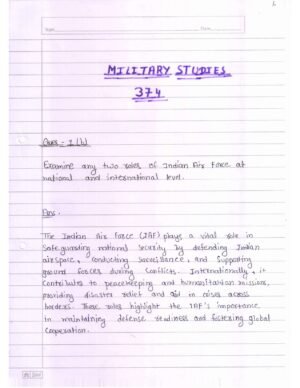 MILITARY STUDIES
374
Ques - 1 (b)
Examine any two roles of Indian Air Force at
national and international level.
Ans.
The Indian Air Force (IAF) plays a vital role in
Safeguarding national security by defending Indian
airspace, conducting surveillance, and supporting
ground forces during conflicts. Internationally, it
contributes to peacekeeping and humanitarian missions,
providing disaster relief and aid in crises across
borders. These roles highlight the IAF's importance
in maintaining defense readiness and fostering global
cooperation.